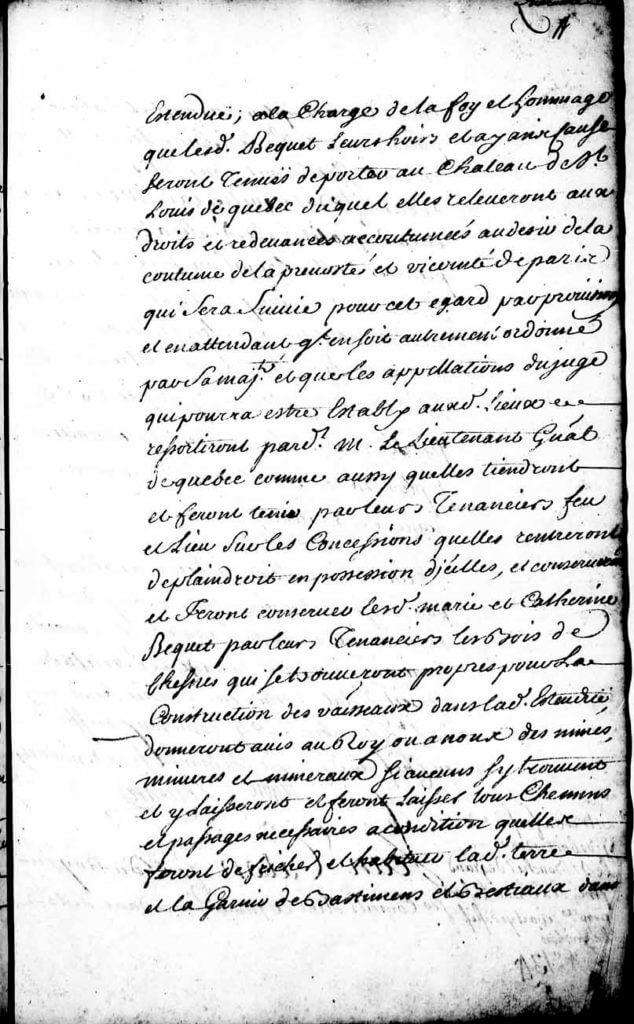 Estendüe; a la Charge de la foy et hommage
que lesd. Bequet Leurs hoirs et ayant Cause
Seront Tenuës de porter au Chateau de St
Louis de quebec duquel elles releveront aux
droits et redevances accoutumées au desir de la
coutume de la prevosté et vicomté de paris
qui Sera Suivie pour cet egard par provision
et en attendant qt. en soit autrement ordonné
par Sa majté. et que les appellations du juge
qui pourra estre Estably auxd. Lieux
ressortiront pardt. M. Le Lieutenant Gñal
de quebec comme aussy quelles tiendront
et feront tenir par leurs Tenanciers feu
et Lieu Sur les Concessions quelles rentreront
de plain droit en possession d'jcelles, et conserveront
et Feront conserver lesd. marie et Catherine
Bequet par leurs Tenanciers les Bois de
Chesnes qui se trouveront propres pour La
Construction des vaisseaux dans lad. Estendüe
donneront avis au Roy ou a nous des mines,
minieres et mineraux si aucuns s'y trouvent
et y Laisseront et feront Laisser tous Chemins
et passages necessaires a condition quelles
feront deficher et habituer lad. terre
et la Garnir de Bastimens et Bestiaux dans